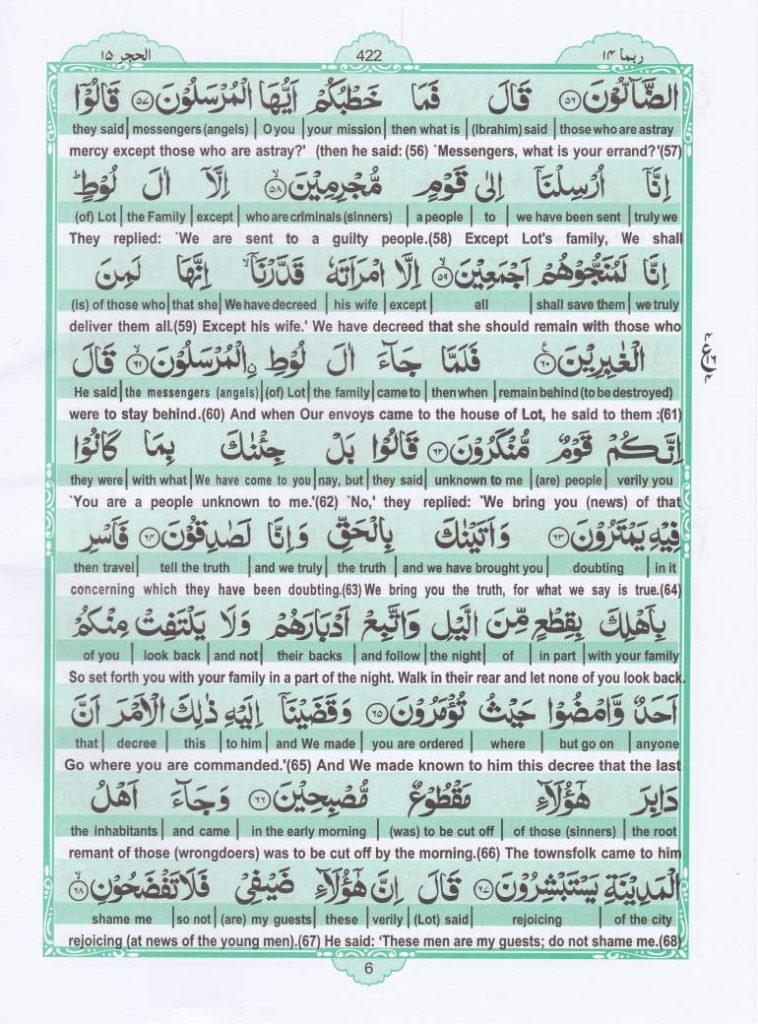 ربما ۱۴
422
الحجر ۱۵
الضَّآلُّوۡنَ ﴿۵۶﴾ قَالَ فَمَا خَطۡبُكُمۡ اَيُّهَا الۡمُرۡسَلُوۡنَ ﴿۵۷﴾ قَالُوۡۤا
they said | messengers (angels) | O you | your mission | then what is | (Ibrahim) said | those who are astray
mercy except those who are astray?' (then he said: (56) `Messengers, what is your errand?'(57)
اِنَّاۤ اُرۡسِلۡنَاۤ اِلٰى قَوۡمٍ مُّجۡرِمِيۡنَ ﴿۵۸﴾ اِلَّاۤ اٰلَ لُوۡطٍؕ
(of) Lot | the Family | except | who are criminals (sinners) | a people | to | we have been sent | truly we
They replied: `We are sent to a guilty people.(58) Except Lot's family, We shall
اِنَّا لَمُنَجُّوۡهُمۡ اَجۡمَعِيۡنَ ﴿۵۹﴾ اِلَّا امۡرَاَتَهٗ قَدَّرۡنَاۤ اِنَّهَا لَمِنَ
(is) of those who | that she | We have decreed | his wife | except | all | shall save them | we truly
deliver them all.(59) Except his wife.' We have decreed that she should remain with those who
الۡغٰبِرِيۡنَ ﴿۶۰﴾ فَلَمَّا جَآءَ اٰلَ لُوۡطِ ۟الۡمُرۡسَلُوۡنَ ﴿۶۱﴾ قَالَ
He said | the messengers (angels) | (of) Lot | the family | came to | then when | remain behind (to be destroyed)
were to stay behind.(60) And when Our envoys came to the house of Lot, he said to them :(61)
اِنَّكُمۡ قَوۡمٌ مُّنۡكَرُوۡنَ ﴿۶۲﴾ قَالُوۡا بَلۡ جِئۡنٰكَ بِمَا كَانُوۡا
they were | with what | We have come to you | nay, but | they said | unknown to me | (are) people | verily you
`You are a people unknown to me.'(62) `No,' they replied: `We bring you (news) of that
فِيۡهِ يَمۡتَرُوۡنَ ﴿۶۳﴾ وَاَتَيۡنٰكَ بِالۡحَقِّ وَاِنَّا لَصٰدِقُوۡنَ ﴿۶۴﴾ فَاَسۡرِ
then travel | tell the truth | and we truly | the truth | and we have brought you | doubting | in it
concerning which they have been doubting.(63) We bring you the truth, for what we say is true.(64)
بِاَهۡلِكَ بِقِطۡعٍ مِّنَ الَّيۡلِ وَاتَّبِعۡ اَدۡبَارَهُمۡ وَلَا يَلۡتَفِتۡ مِنۡكُمۡ
of you | look back | and not | their backs | and follow | the night | of | in part | with your family
So set forth you with your family in a part of the night. Walk in their rear and let none of you look back.
اَحَدٌ وَّامۡضُوۡا حَيۡثُ تُؤۡمَرُوۡنَ ﴿۶۵﴾ وَقَضَيۡنَاۤ اِلَيۡهِ ذٰلِكَ الۡاَمۡرَ اَنَّ
that | decree | this | to him | and We made | you are ordered | where | but go on | anyone
Go where you are commanded.'(65) And We made known to him this decree that the last
دَابِرَ هٰٓؤُلَآءِ مَقۡطُوۡعٌ مُّصۡبِحِيۡنَ ﴿۶۶﴾ وَجَآءَ اَهۡلُ
the inhabitants | and came | in the early morning | (was) to be cut off | of those (sinners) | the root
remant of those (wrongdoers) was to be cut off by the morning.(66) The townsfolk came to him
الۡمَدِيۡنَةِ يَسۡتَبۡشِرُوۡنَ ﴿۶۷﴾ قَالَ اِنَّ هٰٓؤُلَآءِ ضَيۡفِىۡ فَلَا تَفۡضَحُوۡنِ ﴿۶۸﴾
shame me | so not | (are) my guests | these | verily | (Lot) said | rejoicing | of the city
rejoicing (at news of the young men).(67) He said: `These men are my guests; do not shame me.(68)
6